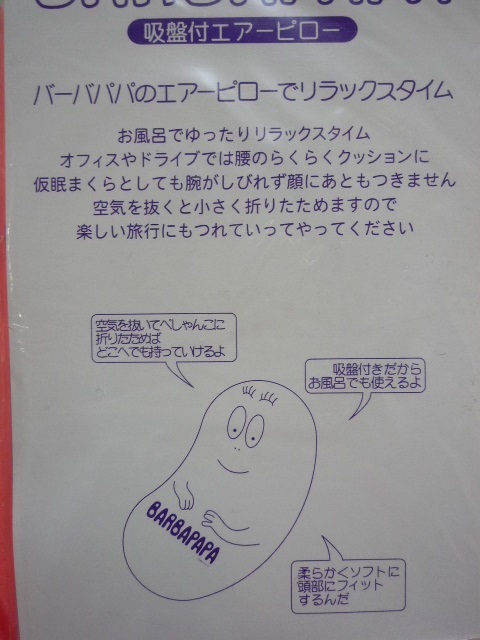 吸盤付エアーピロー
バーバパパのエアーピローでリラックスタイム
お風呂でゆったりリラックスタイム
オフィスやドライブでは腰のらくらくクッションに
仮眠まくらとしても腕がしびれず顔にあともつきません
空気を抜くと小さく折りたためますので
楽しい旅行にもつれていってやってください
空気を抜いてぺしゃんこに
折りたためば
どこへでも持っていけるよ
吸盤付きだから
お風呂でも使えるよ
BARBAPAPA
柔らかくソフトに
頭部にフィット
するんだ